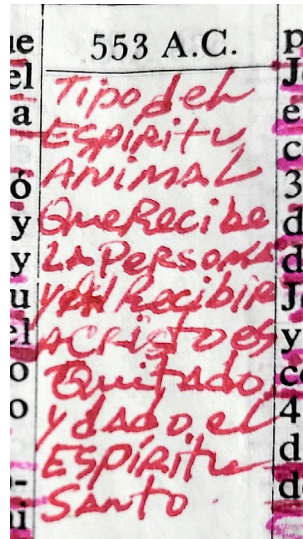 553 A.C.
Tipo del
ESPIRITU
ANIMAL
Que Recibe
LA Persona
y Al Recibir
A CRISTO es
Quitado
y dado el
ESPÍRITU
SANTO.